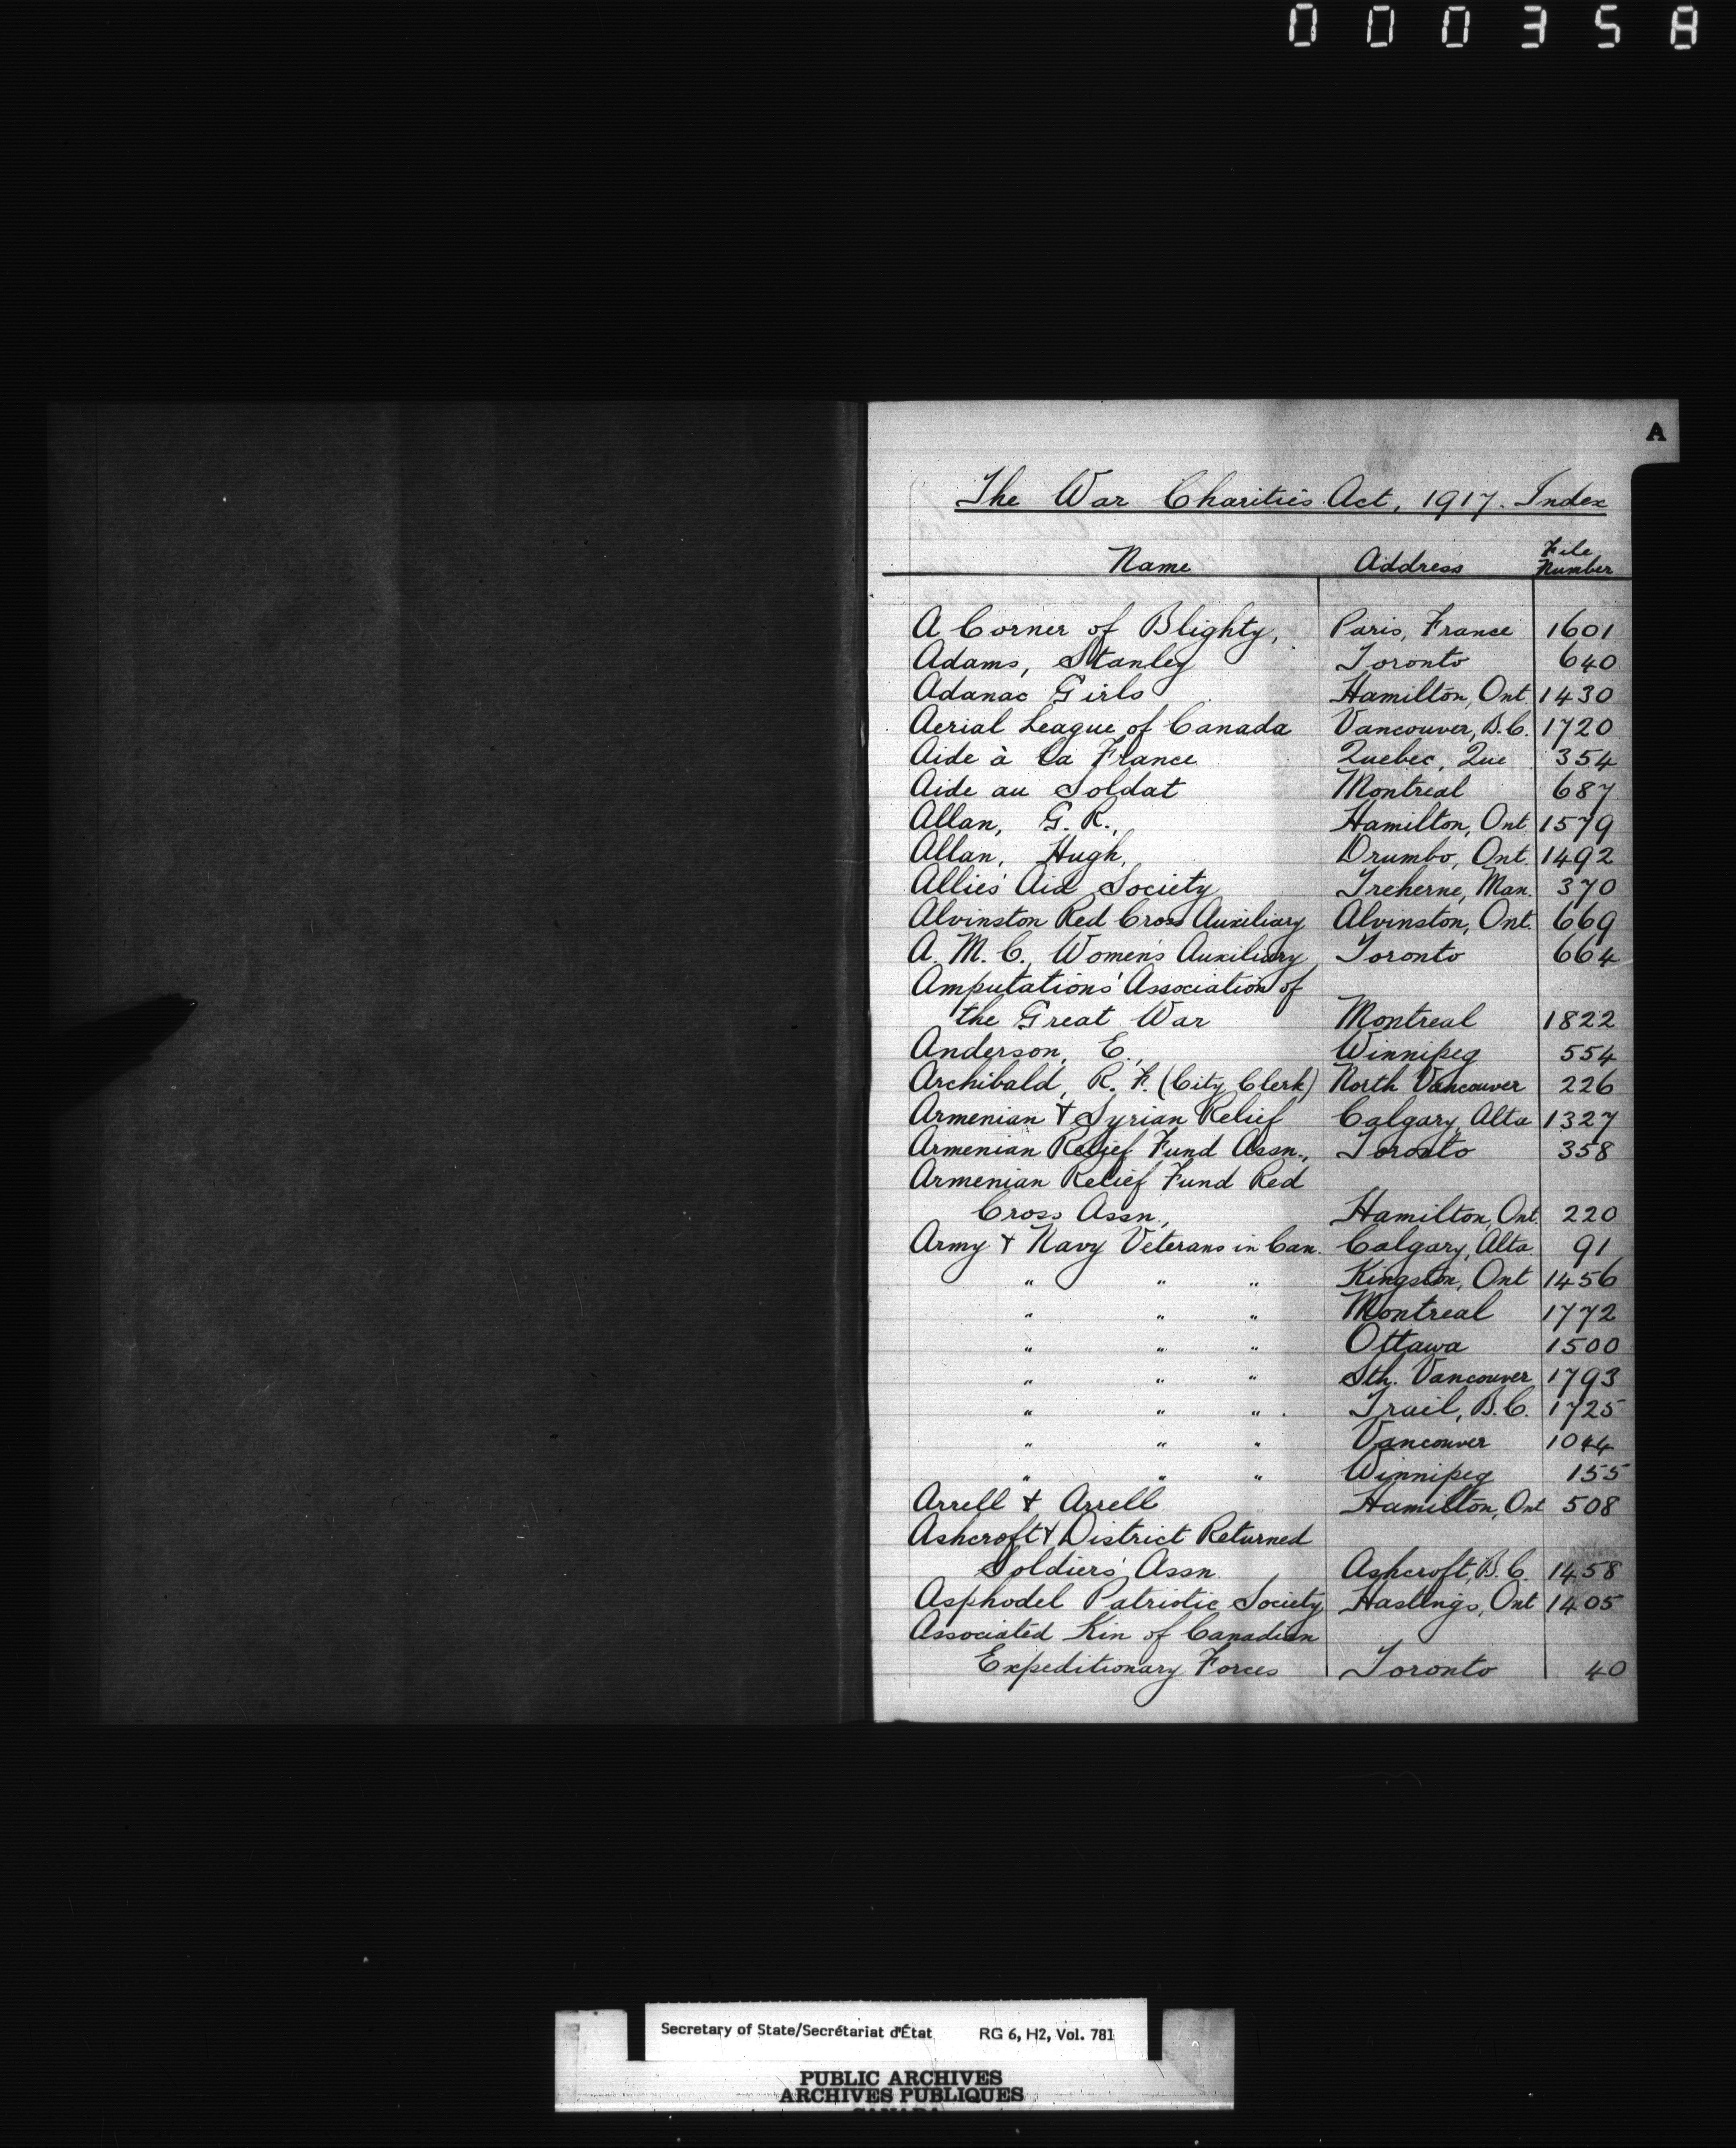 000358
A
The War Charities Act, 1917. Index
Name Address File Number
A Corner of Blighty, Paris, France 1601
Adams, Stanley Toronto 640
Adanac Girls Hamilton, Ont. 1430
Aerial League of Canada Vancouver, B.C. 1720
Aide à la France Quebec, Que 354
Aide au Soldat Montreal 687
Allan, G. R., Hamilton, Ont. 1579
Allan, Hugh, Drumbo, Ont. 1492
Allies' Aid Society Treherne, Man. 370
Alvinston Red Cross Auxiliary Alvinston, Ont. 669
A. M. C., Women's Auxiliary Toronto 664
Amputations' Association of
the Great War Montreal 1822
Anderson, E., Winnipeg 554
Archibald, R. F. (City Clerk) North Vancouver 226
Armenian & Syrian Relief Calgary, Alta 1327
Armenian Relief Fund Assn., Toronto 358
Armenian Relief Fund Red
Cross Assn., Hamilton, Ont. 220
Army & Navy Veterans in Can. Calgary, Alta. 91
" " " Kingston, Ont 1456
" " " Montreal 1772
" " " Ottawa 1500
" " " Sth. Vancouver 1793
" " " Trail, B.C. 1725
" " " Vancouver 1044
" " " Winnipeg 155
Arrell & Arrell Hamilton, Ont 508
Ashcroft & District Returned
Soldiers' Assn. Ashcroft, B.C. 1458
Asphodel Patriotic Society Hastings, Ont 1405
Associated Kin of Canadian
Expeditionary Forces Toronto 40
Secretary of State/Secrétariat d'État RG 6, H2, Vol. 781
PUBLIC ARCHIVES
ARCHIVES PUBLIQUES
CANADA